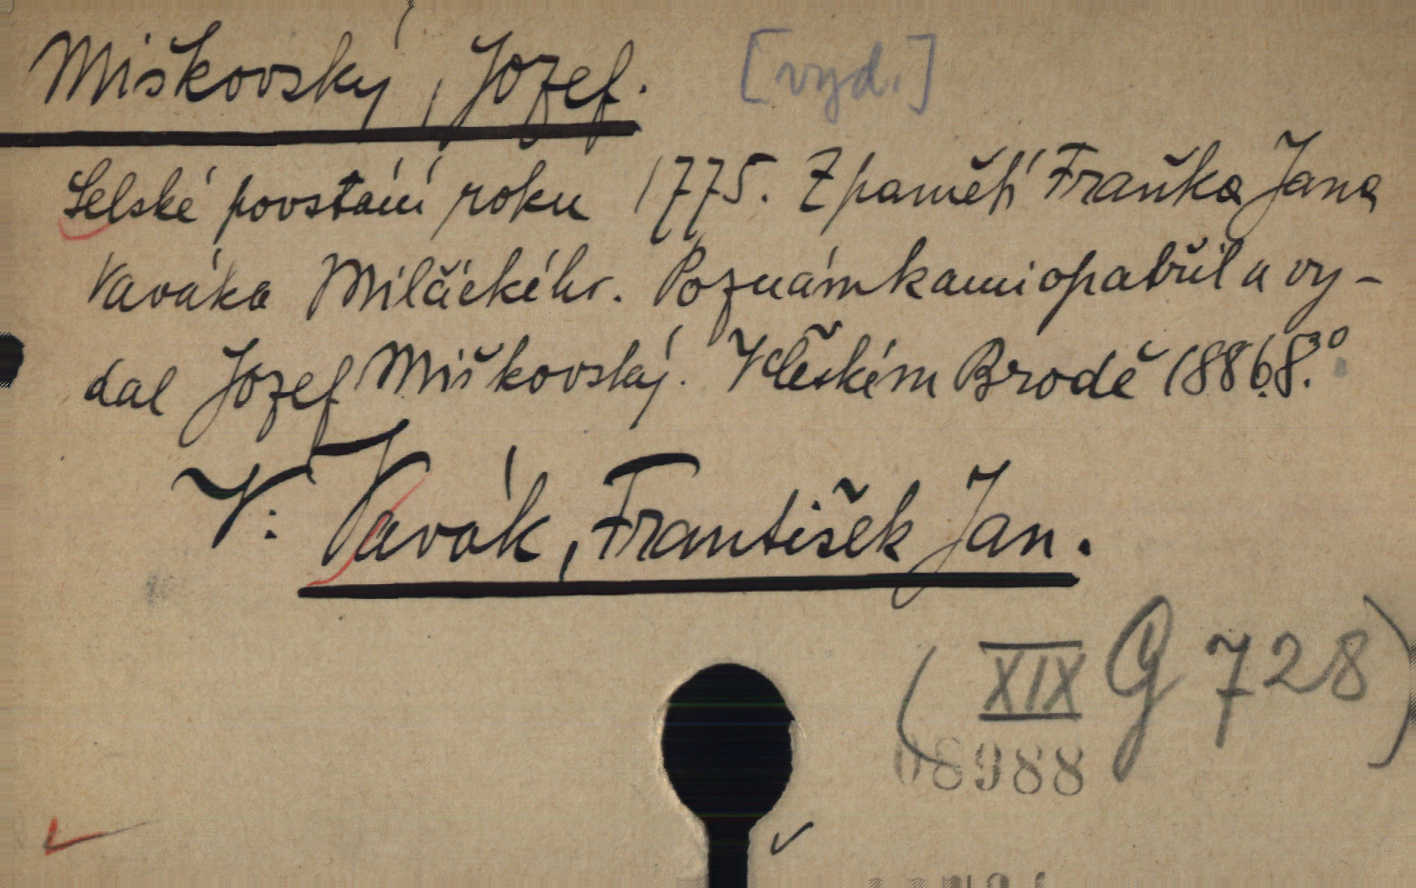 Miškovský, Jozef. [vyd.]
Selské povstání roku 1775. Z pamětí Fraňka Jana
Vaváka Milčického. Poznámkami opatřil a vy-
dal Jozef Miškovský. V Českém Brodě 1886. 8°.
V: Vavák, František Jan.
(XIX G 728)
08988